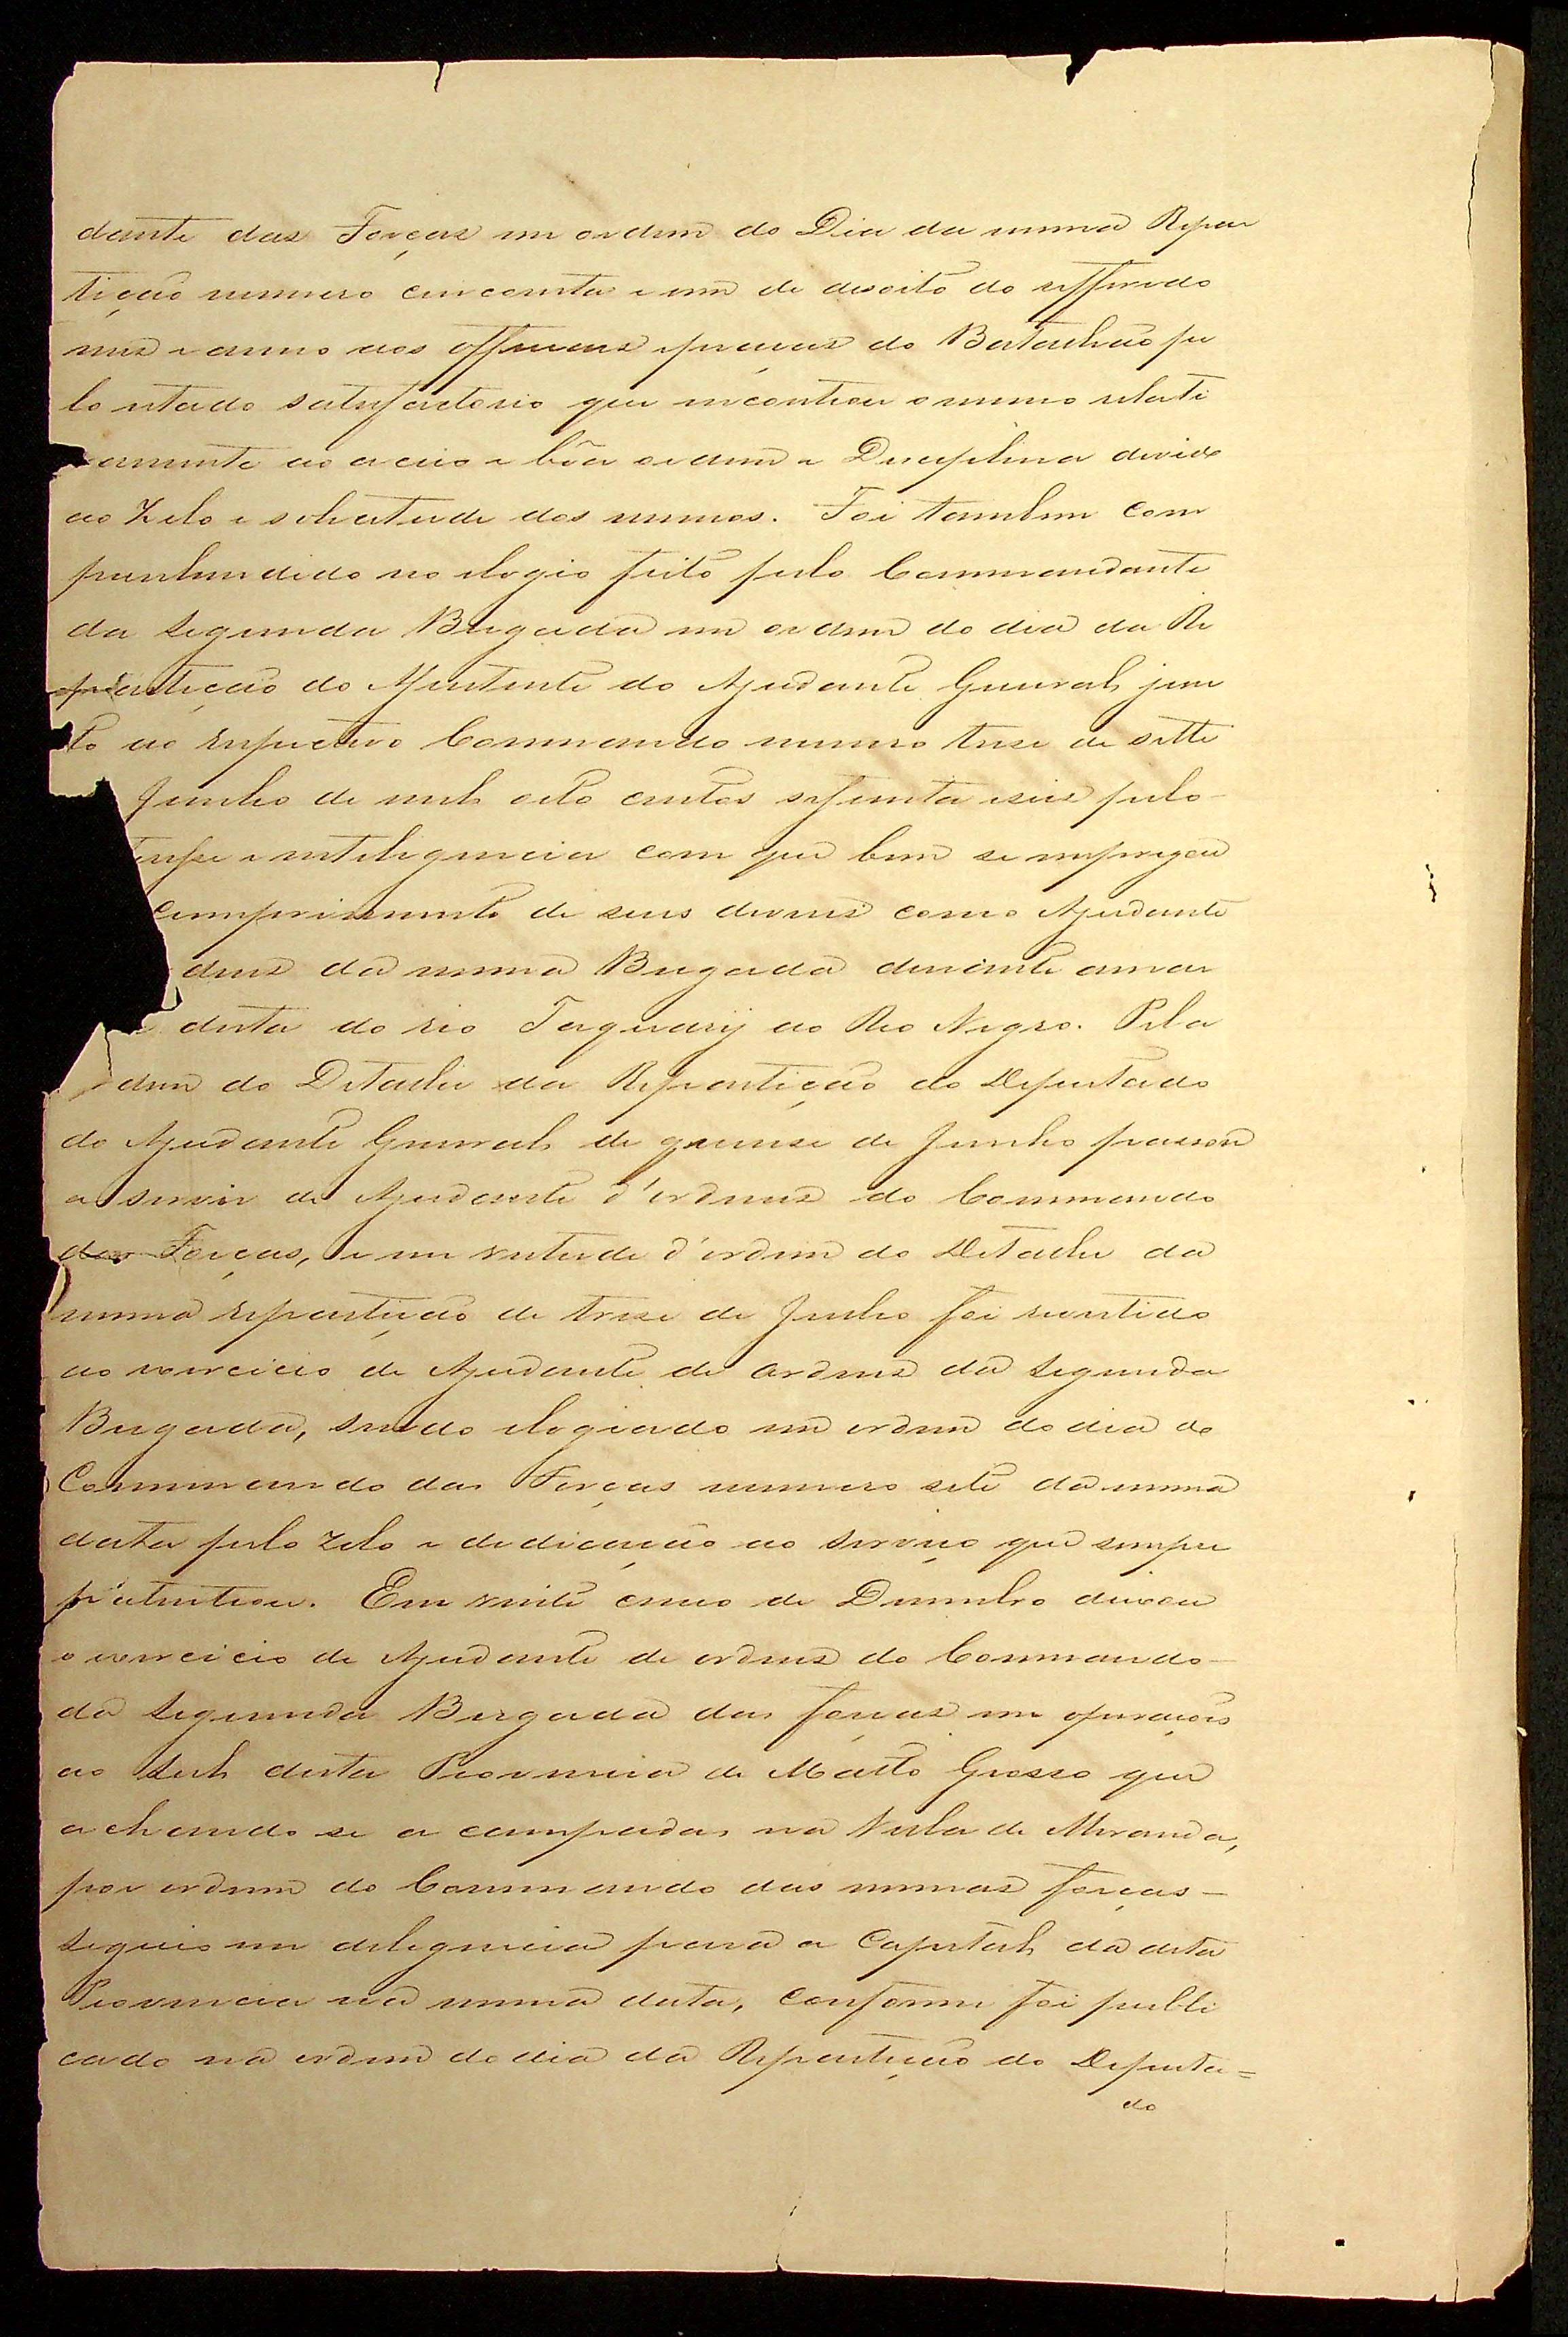 dante das Forças em ordem do Dia da mesma Repar
tição numero cincoenta e um de desoito do refferido
mes e anno aos officiaes e praças do Batalhão pe
lo estado satisfactorio que encontrou o mesmo relati
vamente ao aceio e bôa ordem e Disciplina devido
ao Zelo e solicitude dos mesmos. Foi tambem com
prehendido no elogio feito pelo Commandante
da segunda Brigada em ordem do dia da Re
partição do Assistente do Ajudante General jun
to ao respectivo Commando numero trese de sette
Junho de mil oito centos sessenta e seis pelo
e inteligencia com que bem se empregou
cumprimento de seus deveres como Ajudante
dens da mesma Brigada durante a mar
desta do rio Taquarÿ ao Rio Negro. Pela
dem do Detalhe da Repartição do Deputado
do Ajudante General de quinse de Junho passou
a servir de Ajudante d'ordens do Commando
das Forças, e em virtude d'ordem do Detalhe da
mesma repartição de trese de Julho foi revertido
ao exercicio de Ajudante de ordens da segunda
Brigada, sendo elogiado em ordem do dia do
Commando das Forças numero sete da mesma
data pelo zelo e dedicação ao serviço que sempre
patenteou. Em vinte cinco de Desembro deixou
o exercicio de Ajudante de ordens do Commando
da segunda Brigada das forças em operações
ao Sul desta Provincia de Matto Grosso que
achando se a campadas na Villa de Miranda,
por ordem do Commando das mesmas forças
seguio em deligencia para a Capital da dita
Provincia na mesma data, conforme foi publi
cado na ordem do dia da Repartição do Deputa=
do